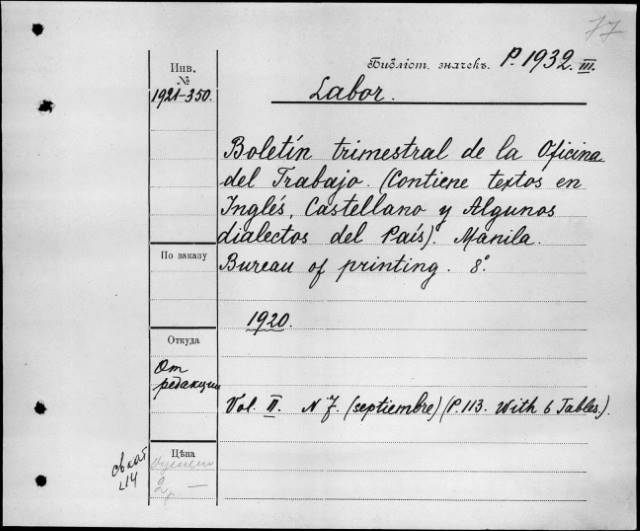 77
Инв. №
1921-350.
Библіот. значекъ. P. 1932. III.
Labor.
Boletín trimestral de la Oficina
del Trabajo. (Contiene textos en
Inglés, Castellano y Algunos
dialectos del País). Manila.
Bureau of printing. 8°.
По заказу
1920.
Откуда
От
редакции
Vol. II. N 7. (septiembre) (P. 113. With 6 Tables).
Цѣна
2 р —